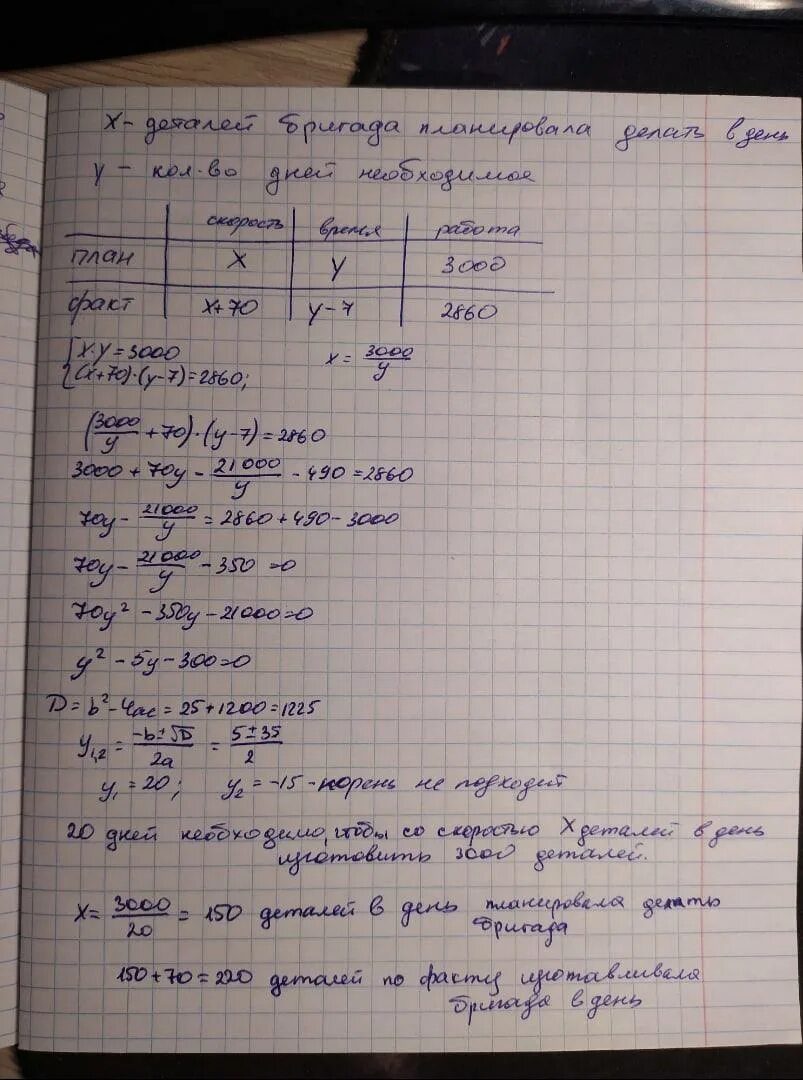 х - деталей бригада планировала делать в день
у - кол-во дней необходимое
скорость время работа
план х у 3000
факт х+70 у-7 2860
{х·у=3000 х = 3000/у
(х+70)·(у-7)=2860;
(3000/у + 70)·(у-7)=2860
3000 + 70у - 21000/у - 490 = 2860
70у - 21000/у = 2860 + 490 - 3000
70у - 21000/у - 350 = 0
70у² - 350у - 21000 = 0
у² - 5у - 300 = 0
D = b² - 4ac = 25 + 1200 = 1225
у₁,₂ = -b±√D/2a = 5±35/2
у₁ = 20; у₂ = -15 - корень не подходит
20 дней необходимо, чтобы со скоростью х деталей в день
изготовить 3000 деталей.
х = 3000/20 = 150 деталей в день планировала делать
бригада
150 + 70 = 220 деталей по факту изготавливала
бригада в день